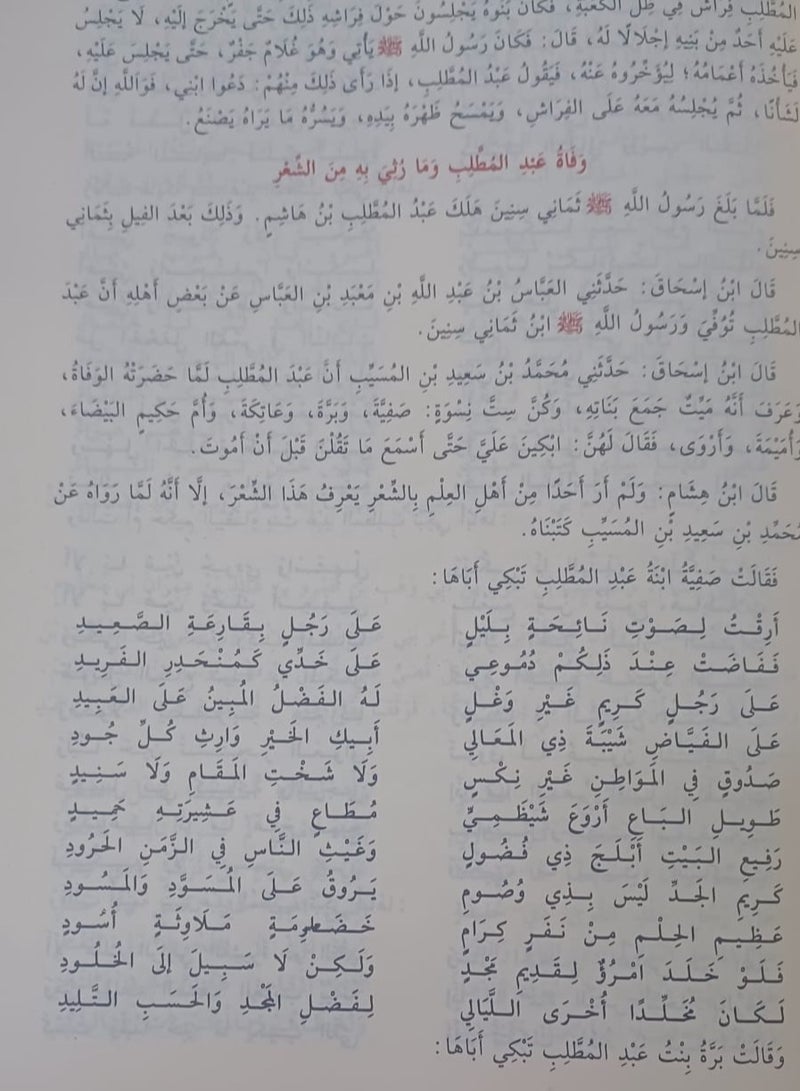 المُطَّلِبِ فِرَاشٌ فِي ظِلِّ الكَعْبَةِ، فَكَانَ بَنُوهُ يَجْلِسُونَ حَوْلَ فِرَاشِهِ ذَلِكَ حَتَّى يَخْرُجَ إِلَيْهِ، لَا يَجْلِسُ
عَلَيْهِ أَحَدٌ مِنْ بَنِيهِ إجْلَالًا لَهُ، قَالَ: فَكَانَ رَسُولُ اللَّهِ ﷺ يَأْتِي وَهُوَ غُلَامٌ جَفْرٌ، حَتَّى يَجْلِسَ عَلَيْهِ،
فَيَأْخُذَهُ أَعْمَامُهُ؛ لِيُؤَخِّرُوهُ عَنْهُ، فَيَقُولُ عَبْدُ المُطَّلِبِ، إذَا رَأَى ذَلِكَ مِنْهُمْ: دَعُوا ابْنِي، فَوَاللَّهِ إنَّ لَهُ
لَشَأْنًا، ثُمَّ يُجْلِسُهُ مَعَهُ عَلَى الفِرَاشِ، وَيَمْسَحُ ظَهْرَهُ بِيَدِهِ، وَيَسُرُّهُ مَا يَرَاهُ يَصْنَعُ.
وَفَاةُ عَبْدِ المُطَّلِبِ وَمَا رُثِيَ بِهِ مِنَ الشِّعْرِ
فَلَمَّا بَلَغَ رَسُولُ اللَّهِ ﷺ ثَمَانِي سِنِينَ هَلَكَ عَبْدُ المُطَّلِبِ بْنُ هَاشِمٍ. وَذَلِكَ بَعْدَ الفِيلِ بِثَمَانِي
سِنِينَ.
قَالَ ابْنُ إسْحَاقَ: حَدَّثَنِي العَبَّاسُ بْنُ عَبْدِ اللَّهِ بْنِ مَعْبَدِ بْنِ العَبَّاسِ عَنْ بَعْضِ أَهْلِهِ أَنَّ عَبْدَ
المُطَّلِبِ تُوُفِّيَ وَرَسُولُ اللَّهِ ﷺ ابْنُ ثَمَانِي سِنِينَ.
قَالَ ابْنُ إسْحَاقَ: حَدَّثَنِي مُحَمَّدُ بْنُ سَعِيدِ بْنِ المُسَيِّبِ أَنَّ عَبْدَ المُطَّلِبِ لَمَّا حَضَرَتْهُ الوَفَاةُ،
وَعَرَفَ أَنَّهُ مَيِّتٌ جَمَعَ بَنَاتِهِ، وَكُنَّ سِتَّ نِسْوَةٍ: صَفِيَّةَ، وَبَرَّةَ، وَعَاتِكَةَ، وَأُمَّ حَكِيمٍ البَيْضَاءَ،
وَأُمَيْمَةَ، وَأَرْوَى، فَقَالَ لَهُنَّ: ابْكِينَ عَلَيَّ حَتَّى أَسْمَعَ مَا تَقُلْنَ قَبْلَ أَنْ أَمُوتَ.
قَالَ ابْنُ هِشَامٍ: وَلَمْ أَرَ أَحَدًا مِنْ أَهْلِ العِلْمِ بِالشِّعْرِ يَعْرِفُ هَذَا الشِّعْرَ، إلَّا أَنَّهُ لَمَّا رَوَاهُ عَنْ
مُحَمَّدِ بْنِ سَعِيدِ بْنِ المُسَيِّبِ كَتَبْنَاهُ.
فَقَالَتْ صَفِيَّةُ ابْنَةُ عَبْدِ المُطَّلِبِ تَبْكِي أَبَاهَا:
أَرِقْتُ لِصَوْتِ نَائِحَةٍ بِلَيْلٍ عَلَى رَجُلٍ بِقَارِعَةِ الصَّعِيدِ
فَفَاضَتْ عِنْدَ ذَلِكُمْ دُمُوعِي عَلَى خَدِّي كَمُنْحَدِرِ الفَرِيدِ
عَلَى رَجُلٍ كَرِيمٍ غَيْرِ وَغْلٍ لَهُ الفَضْلُ المُبِينُ عَلَى العَبِيدِ
عَلَى الفَيَّاضِ شَيْبَةَ ذِي المَعَالِي أَبِيكِ الخَيْرِ وَارِثِ كُلِّ جُودِ
صَدُوقٍ فِي المَوَاطِنِ غَيْرِ نِكْسٍ وَلَا شَخْتِ المَقَامِ وَلَا سَنِيدِ
طَوِيلِ البَاعِ أَرْوَعَ شَيْظَمِيٍّ مُطَاعٍ فِي عَشِيرَتِهِ حَمِيدِ
رَفِيعِ البَيْتِ أَبْلَجَ ذِي فُضُولٍ وَغَيْثِ النَّاسِ فِي الزَّمَنِ الحَرُودِ
كَرِيمِ الجَدِّ لَيْسَ بِذِي وُصُومٍ يَرُوقُ عَلَى المُسَوَّدِ وَالمَسُودِ
عَظِيمِ الحِلْمِ مِنْ نَفَرٍ كِرَامٍ خَضَارِمَةٍ مَلَاوِثَةٍ أُسُودِ
فَلَوْ خَلَدَ امْرُؤٌ لِقَدِيمِ مَجْدٍ وَلَكِنْ لَا سَبِيلَ إلَى الخُلُودِ
لَكَانَ مُخَلَّدًا أُخْرَى اللَّيَالِي لِفَضْلِ المَجْدِ وَالحَسَبِ التَّلِيدِ
وَقَالَتْ بَرَّةُ بِنْتُ عَبْدِ المُطَّلِبِ تَبْكِي أَبَاهَا: